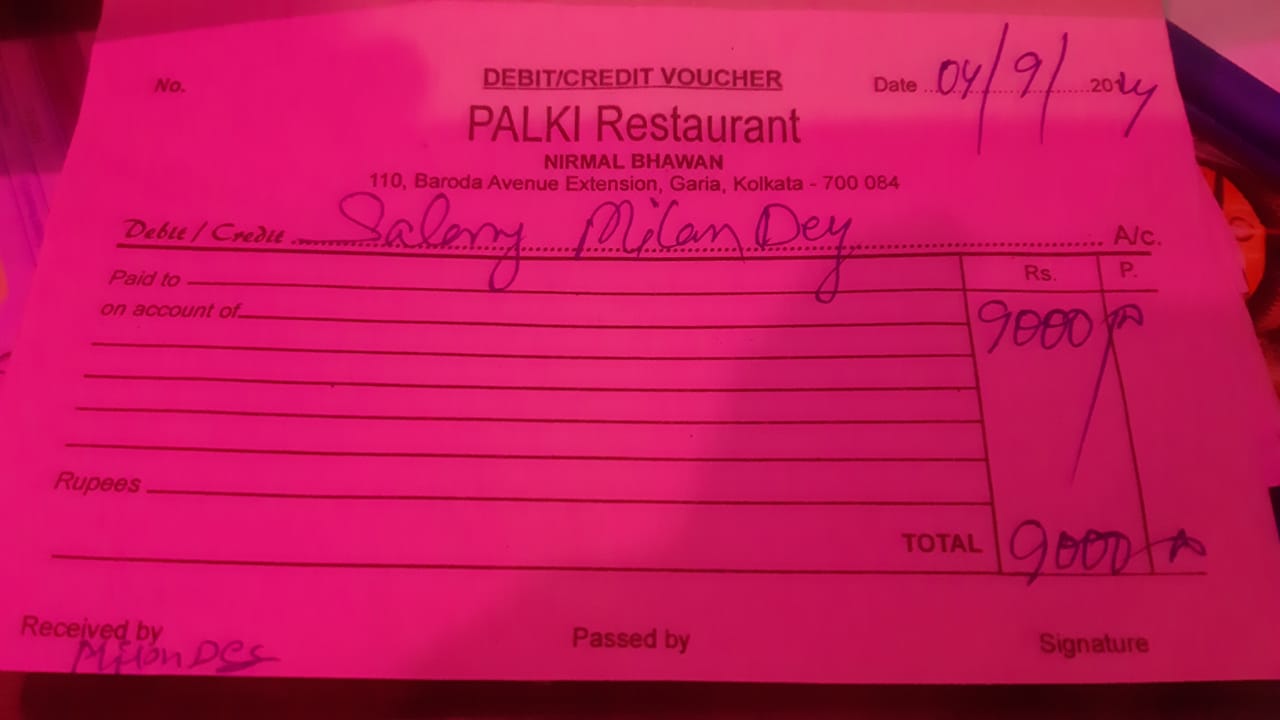 No.
DEBIT/CREDIT VOUCHER
Date 04/9/2024
PALKI Restaurant
NIRMAL BHAWAN
110, Baroda Avenue Extension, Garia, Kolkata - 700 084
Debit / Credit Salary Milan Dey A/c.
Paid to Rs. P.
on account of 9000/-
Rupees
TOTAL 9000/-
Received by Passed by Signature
Milon Des